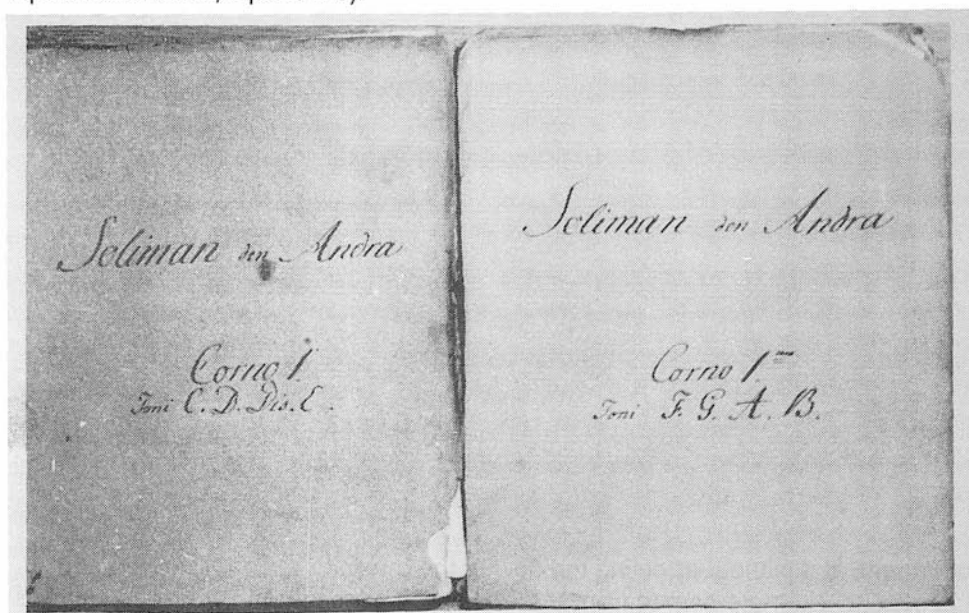 Soliman den Andra
Corno 1.
Toni C. D. Dis. E.
Soliman den Andra
Corno 1mo
Toni F. G. A. B.